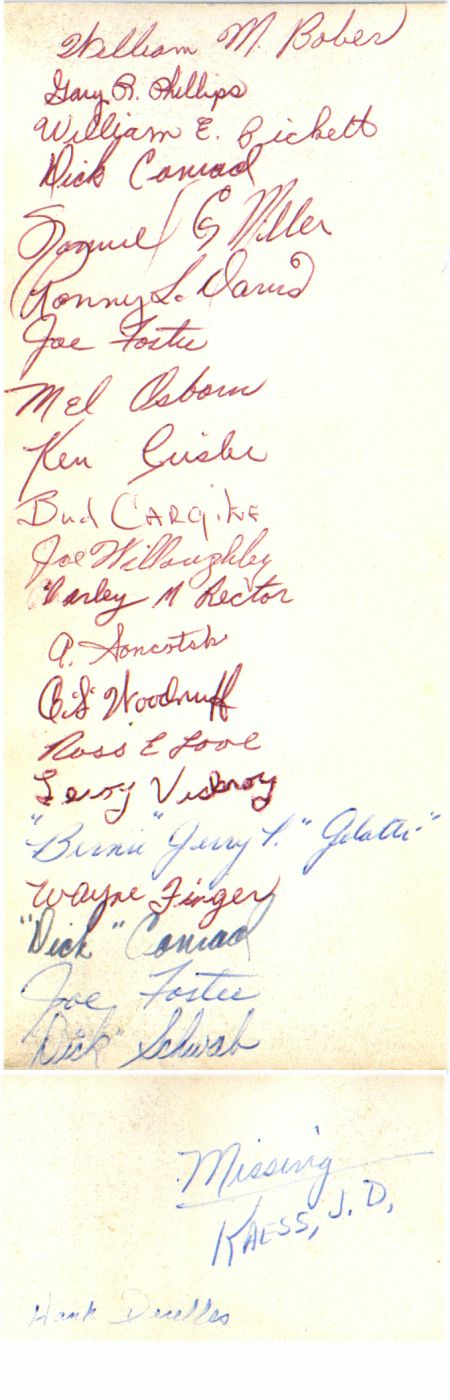 William M. Bober
Gary R. Phillips
William E. Rickett
Dick Conrad
Samuel G Miller
Ronny L. Davis
Joe Foster
Mel Osborn
Ken
Bud
Joe Willoughby
Varley M Rector
A.
C.S. Woodruff
Ross E Love
Leroy Vickroy
"Bernie" Jerry P. "Gelatti"
Wayne Finger
"Dick" Conrad
Joe Foster
"Dick" Schwab
Missing
KAESS, J. D.
Hank Decelles